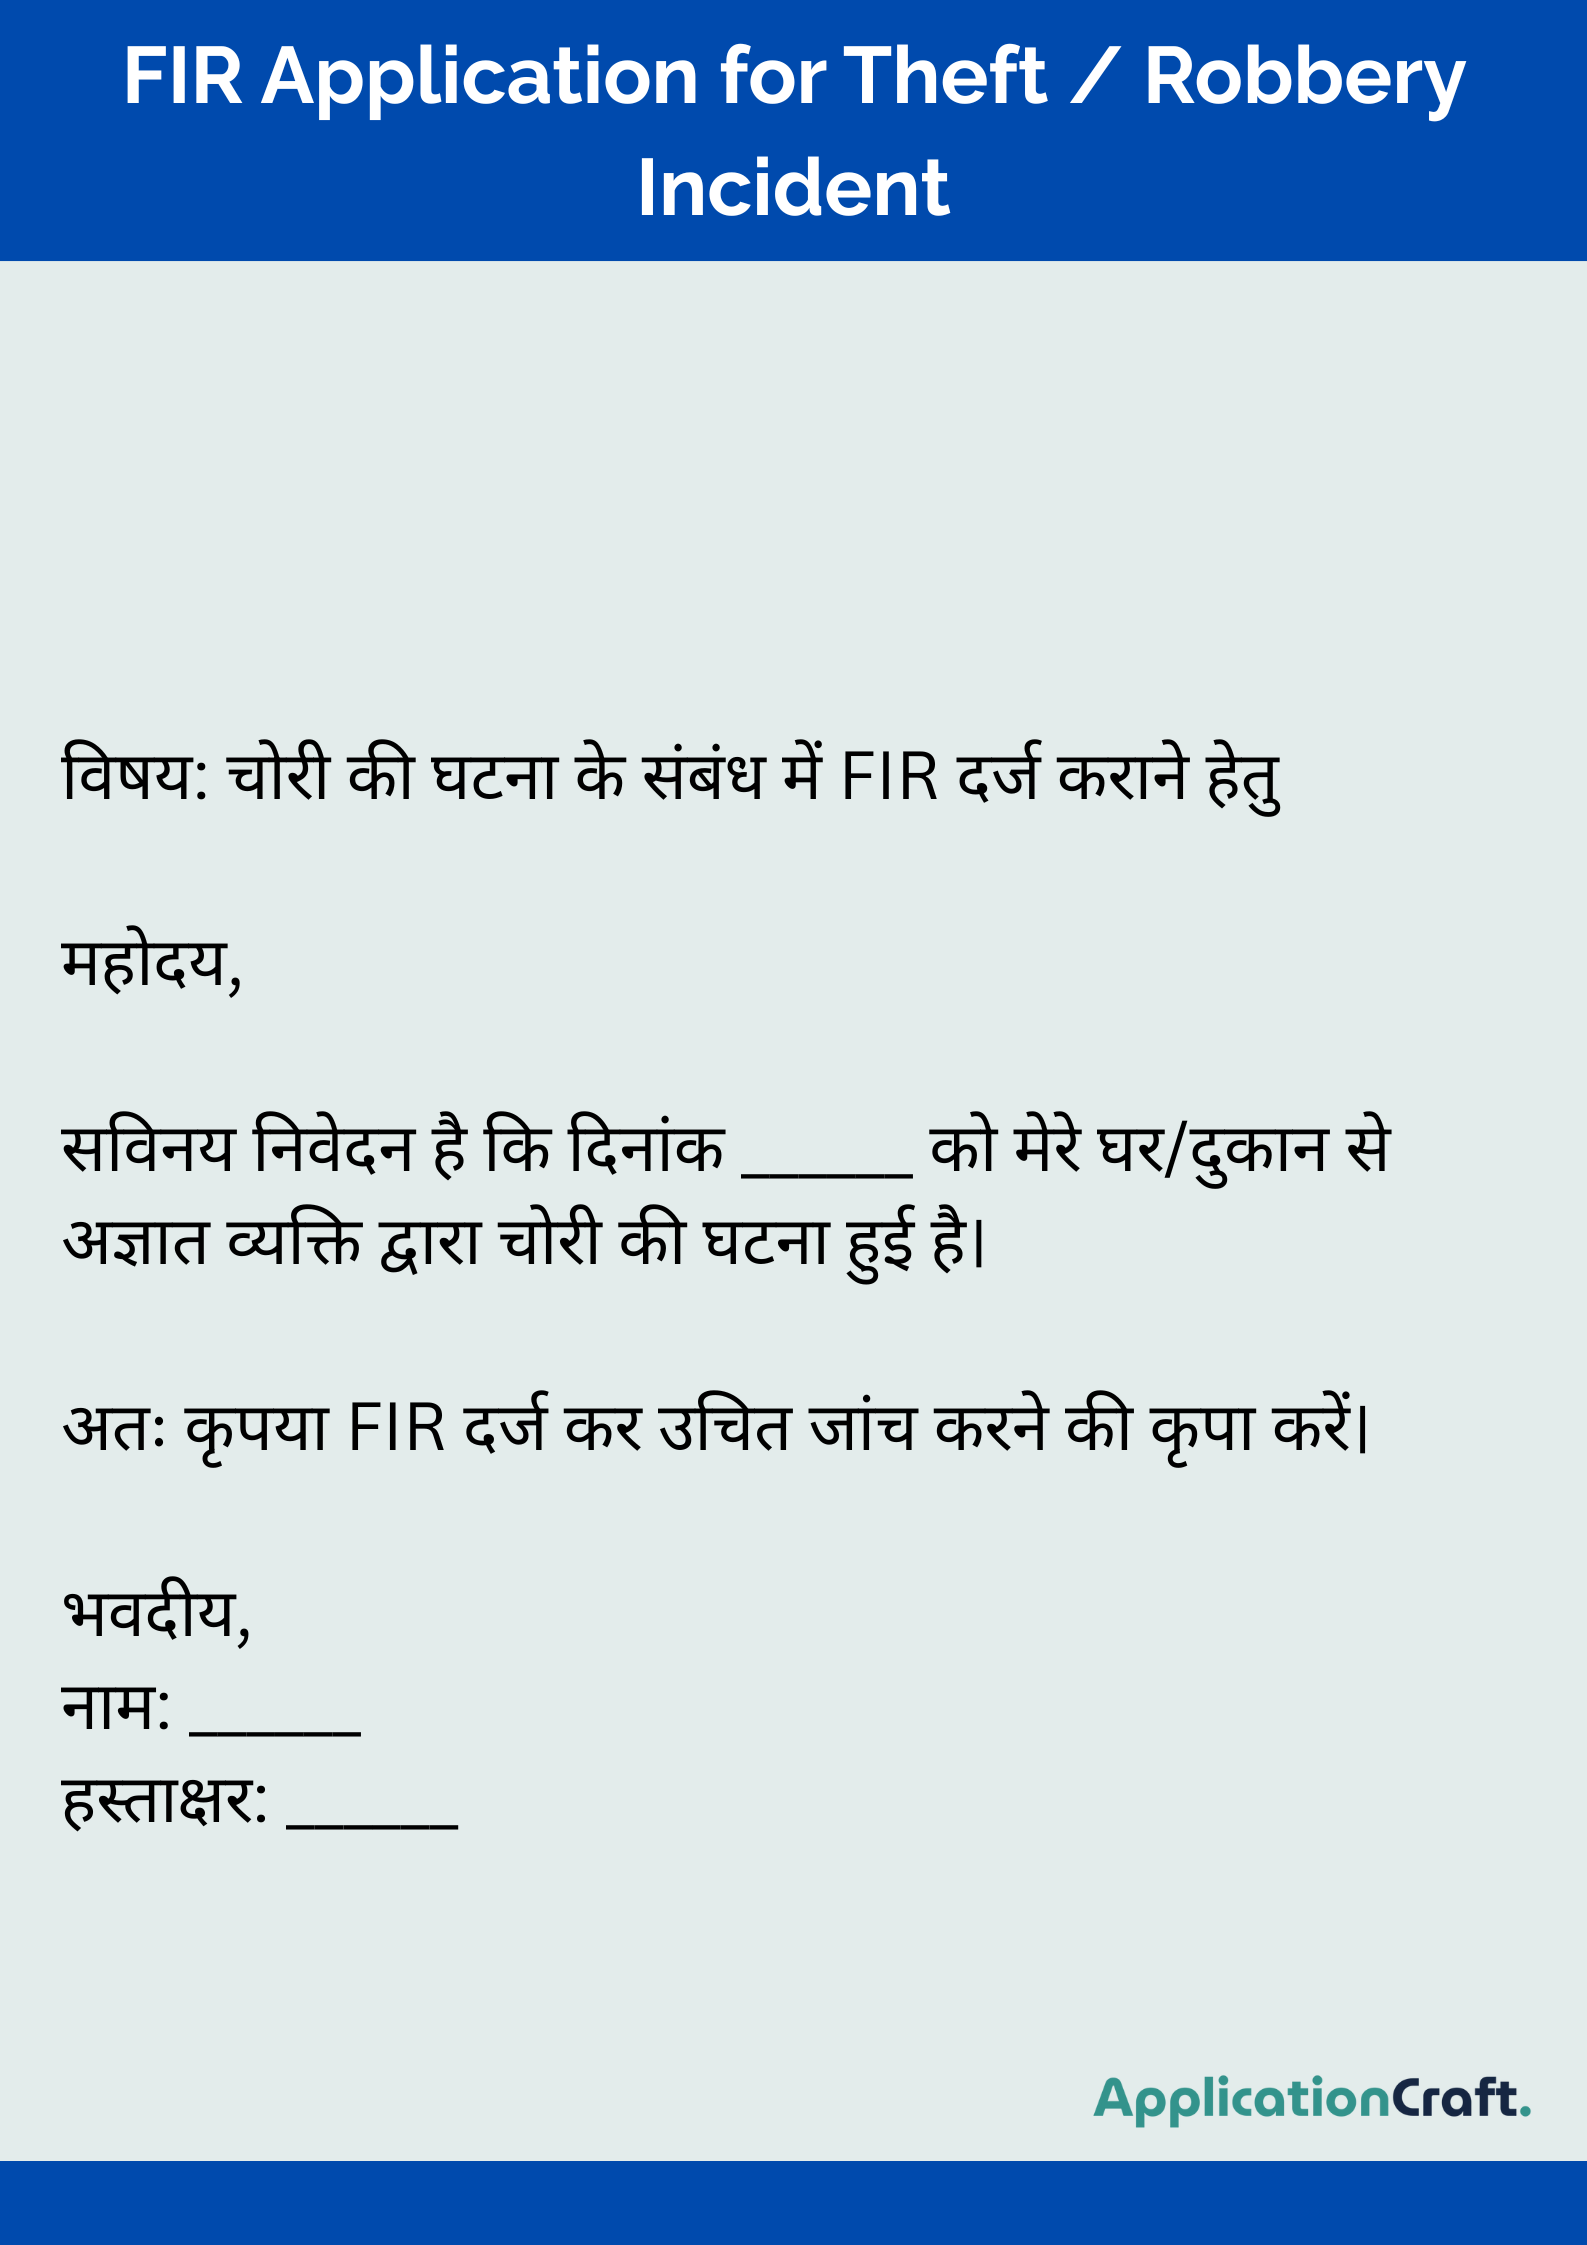 FIR Application for Theft / Robbery
Incident
विषय: चोरी की घटना के संबंध में FIR दर्ज कराने हेतु
महोदय,
सविनय निवेदन है कि दिनांक ______ को मेरे घर/दुकान से
अज्ञात व्यक्ति द्वारा चोरी की घटना हुई है।
अतः कृपया FIR दर्ज कर उचित जांच करने की कृपा करें।
भवदीय,
नाम: ______
हस्ताक्षर: ______
ApplicationCraft.